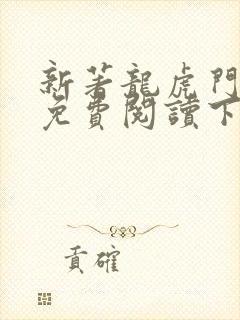 新著龍虎門
免費閱讀下
貢確